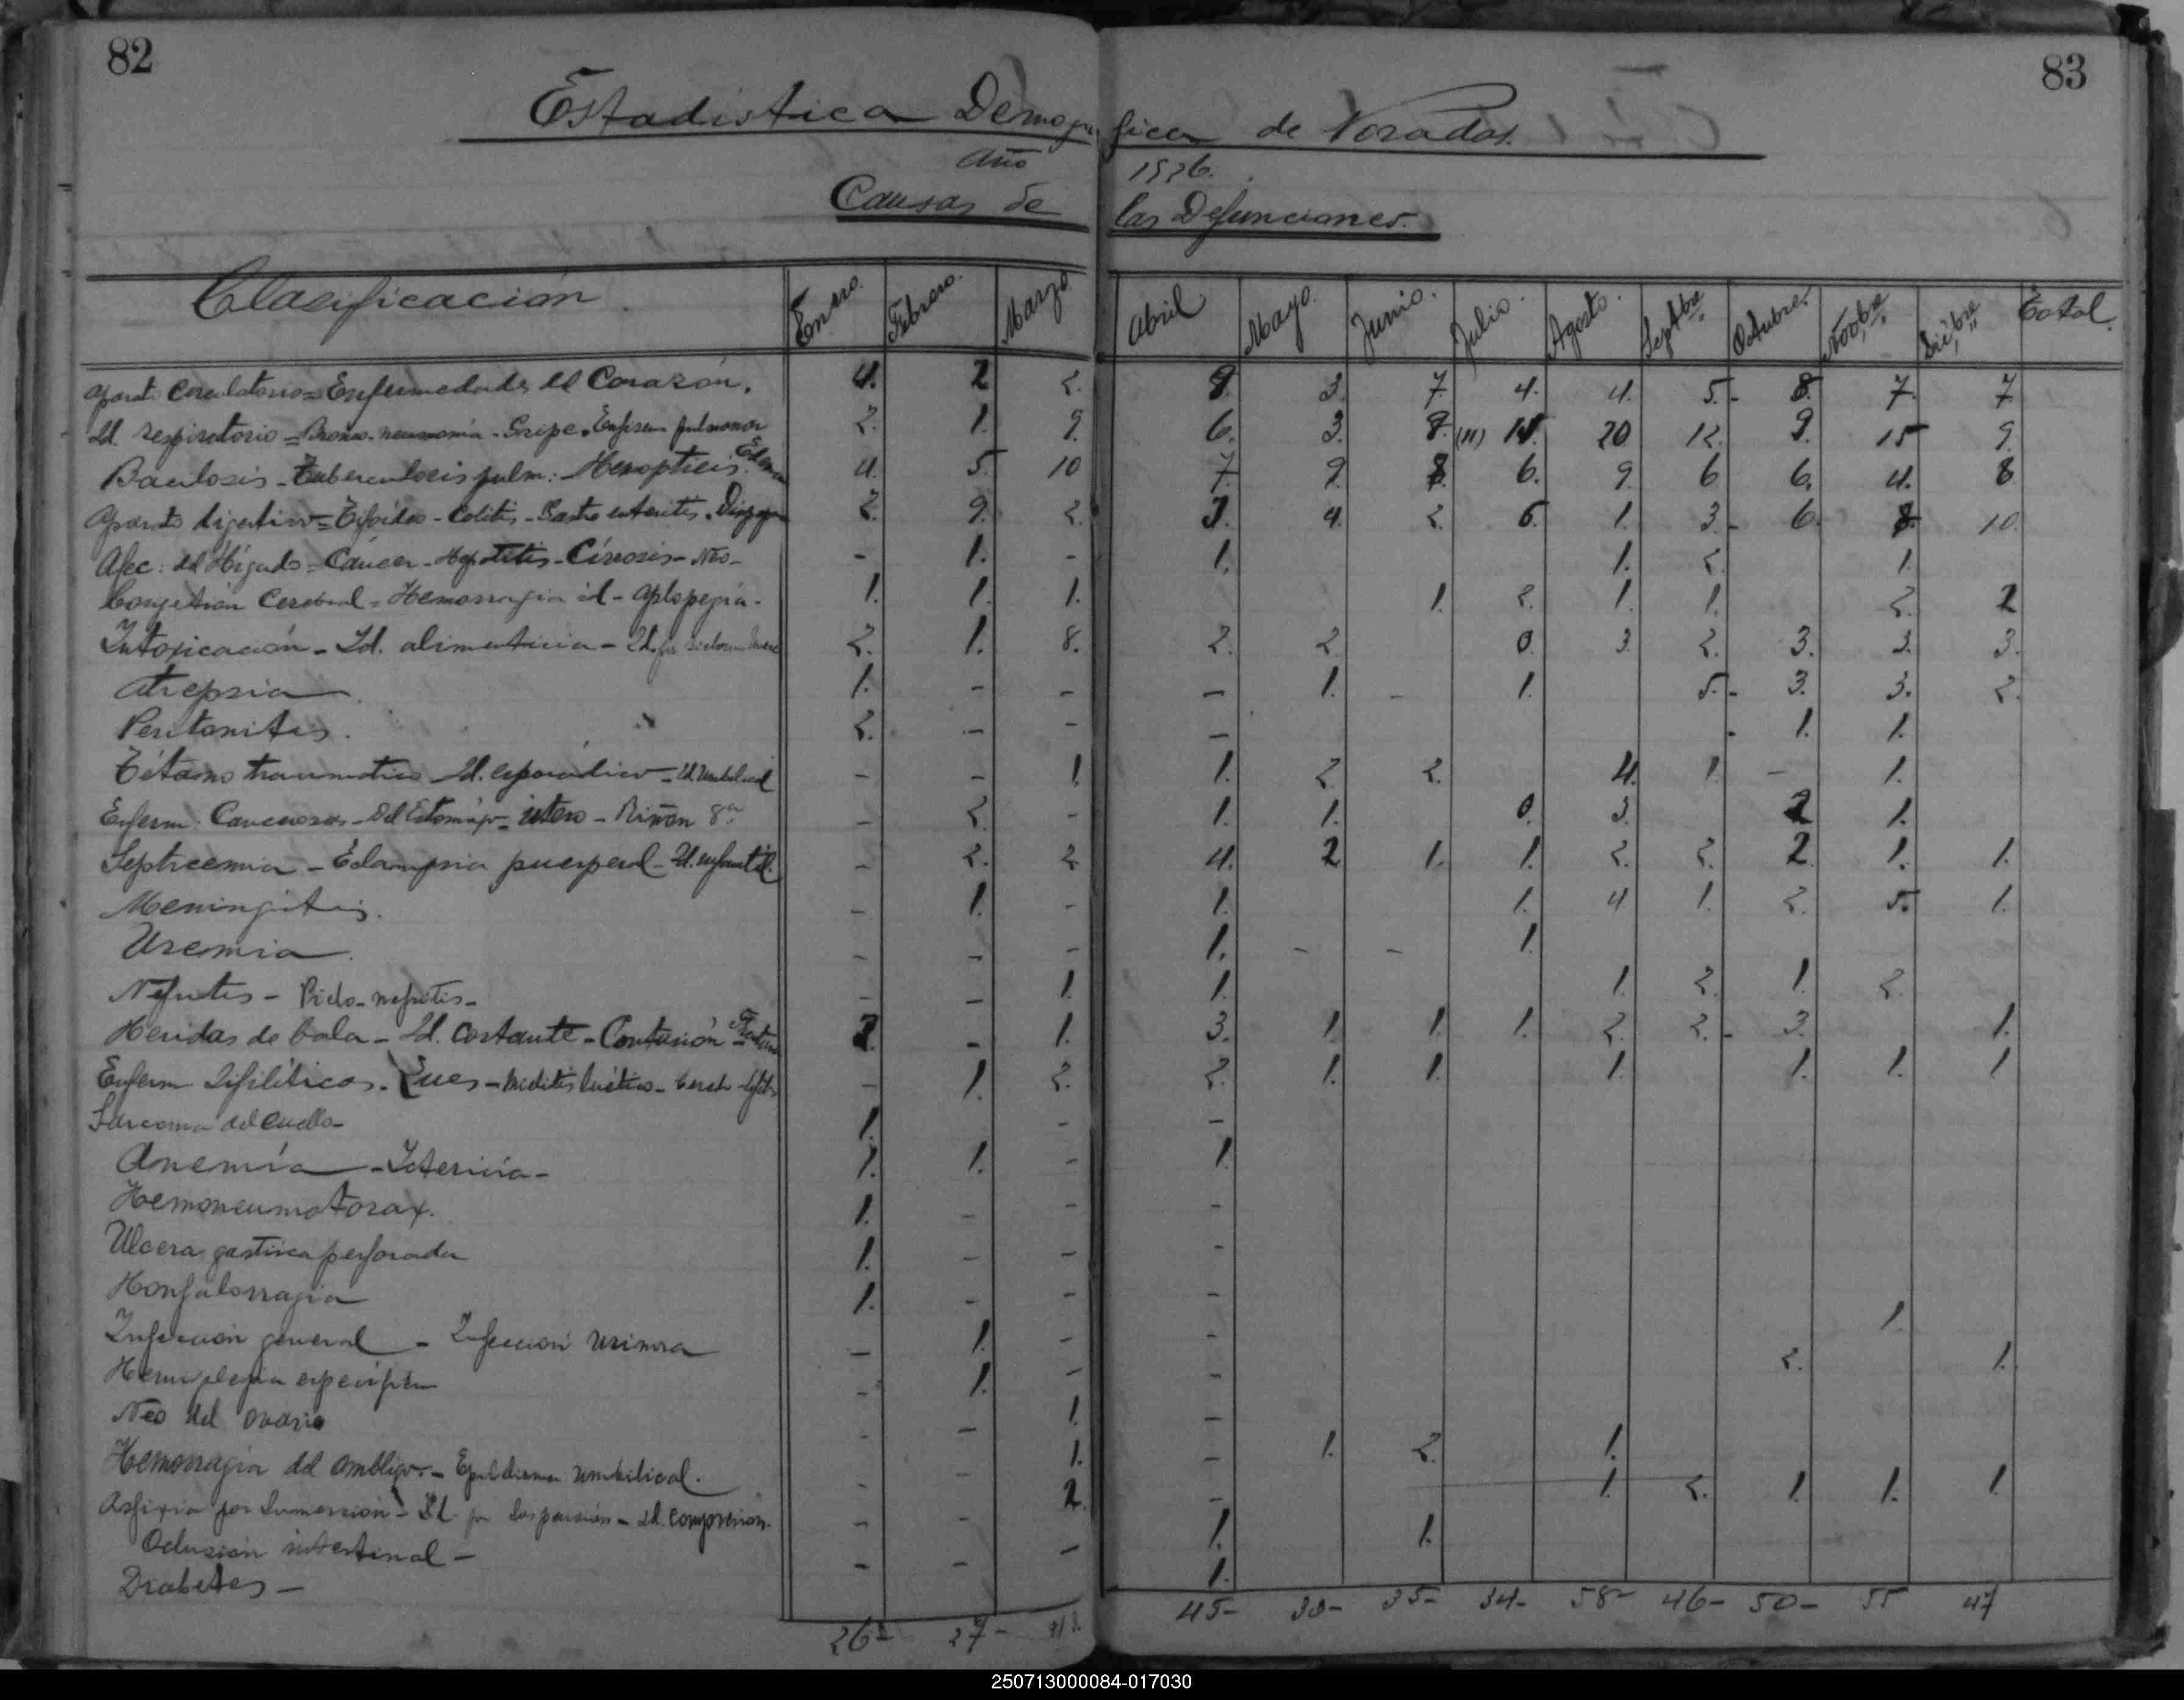 82
83
Estadistica Demografica de Posadas.
Año 1936.
Causas de las Defunciones.
Clasificación. Enero. Febrero. Marzo Abril Mayo. Junio. Julio. Agosto. Septbre Octubre. Novbre Dicbre Total.
Aparato Circulatorio = Enfermedades del Corazón. 4. 2 2. 8. 3. 7. 4. 4. 5.- 8. 7. 7
Id respiratorio = Bronco-neumonia - Gripe - Enfisem pulmonar 2. 1. 9. 6. 3. 8. (11) 20 12. 9. 15 9.
Bacilosis - Tuberculosis pulm: - Hemoptisis. Edema 4. 5. 10 7. 9. 8. 6. 9. 6 6. 4. 8
Aparato digestivo = Tifoidea - Colitis - Gastro enteritis. 2. 9. 2. 3. 4. 2. 6. 1. 3.- 6. 8. 10.
Afec: del Hígado = Cáncer - Hepatitis - Cirrosis - Neo- - 1. - 1. 1. 2. 1.
Congestión Cerebral = Hemorragia id - Aplopegia. 1. 1. 1. 1. 2. 1. 1. 2. 2
Intoxicación - Id. alimenticia - Id. por 2. 1. 8. 2. 2. 0. 3. 2. 3. 3. 3.
Atrepsia. 1. - - - 1. - 1. 5.- 3. 3. 2.
Peritonitis. 2. - - - 1. 1.
Tétano traumatico - Id. esporádico - Id. Umbilical - - 1. 1. 2. 2. 4. 1 - 1.
Enferm. Cancerosas - Del Estomago - útero - Riñon - 2. - 1. 1. 0. 3. 2 1.
Septicemia - Eclampsia puerperal - Id. infantil. - 2. 2 4. 2 1. 1. 2. 2. 2. 1. 1.
Meningitis. - 1. - 1. 1. 4 1. 2. 5. 1.
Uremia. - - - 1. - - 1.
Nefritis - Pielo-nefritis - - - 1. 1. 1. 2. 1. 2.
Heridas de bala - Id. Cortante - Contusión - Fractura 2. - 1. 3. 1. 1. 1. 2. 2.- 3. 1.
Enferm Sifiliticas. Lues - - 1. 2. 2. 1. 1. 1. 1. 1. 1
Sarcoma del Cuello - 1. - -
Anemía - Ictericia - 1. 1. - 1.
Hemoneumotorax. 1. - - -
Ulcera gastrica perforada 1. - - -
Honfalorragia 1. - - -
Infección general - Infección urinora - 1. - - 1.
Hemiplegia - 1. - - 2. 1.
Neo del ovario - - 1. -
Hemorragia del ombligo. - umbilical. - - 1. - 1. 2. 1.
Asfixia por Sumersion - Id. por Suspensión - Id. Compresion. - - 2. - 1. 2. 1. 1. 1.
Oclusion intestinal - - - - 1. 1.
Diabetes - - - 1.
26- 27- 43. 45- 30- 35- 34- 58- 46- 50- 55 47
250713000084-017030